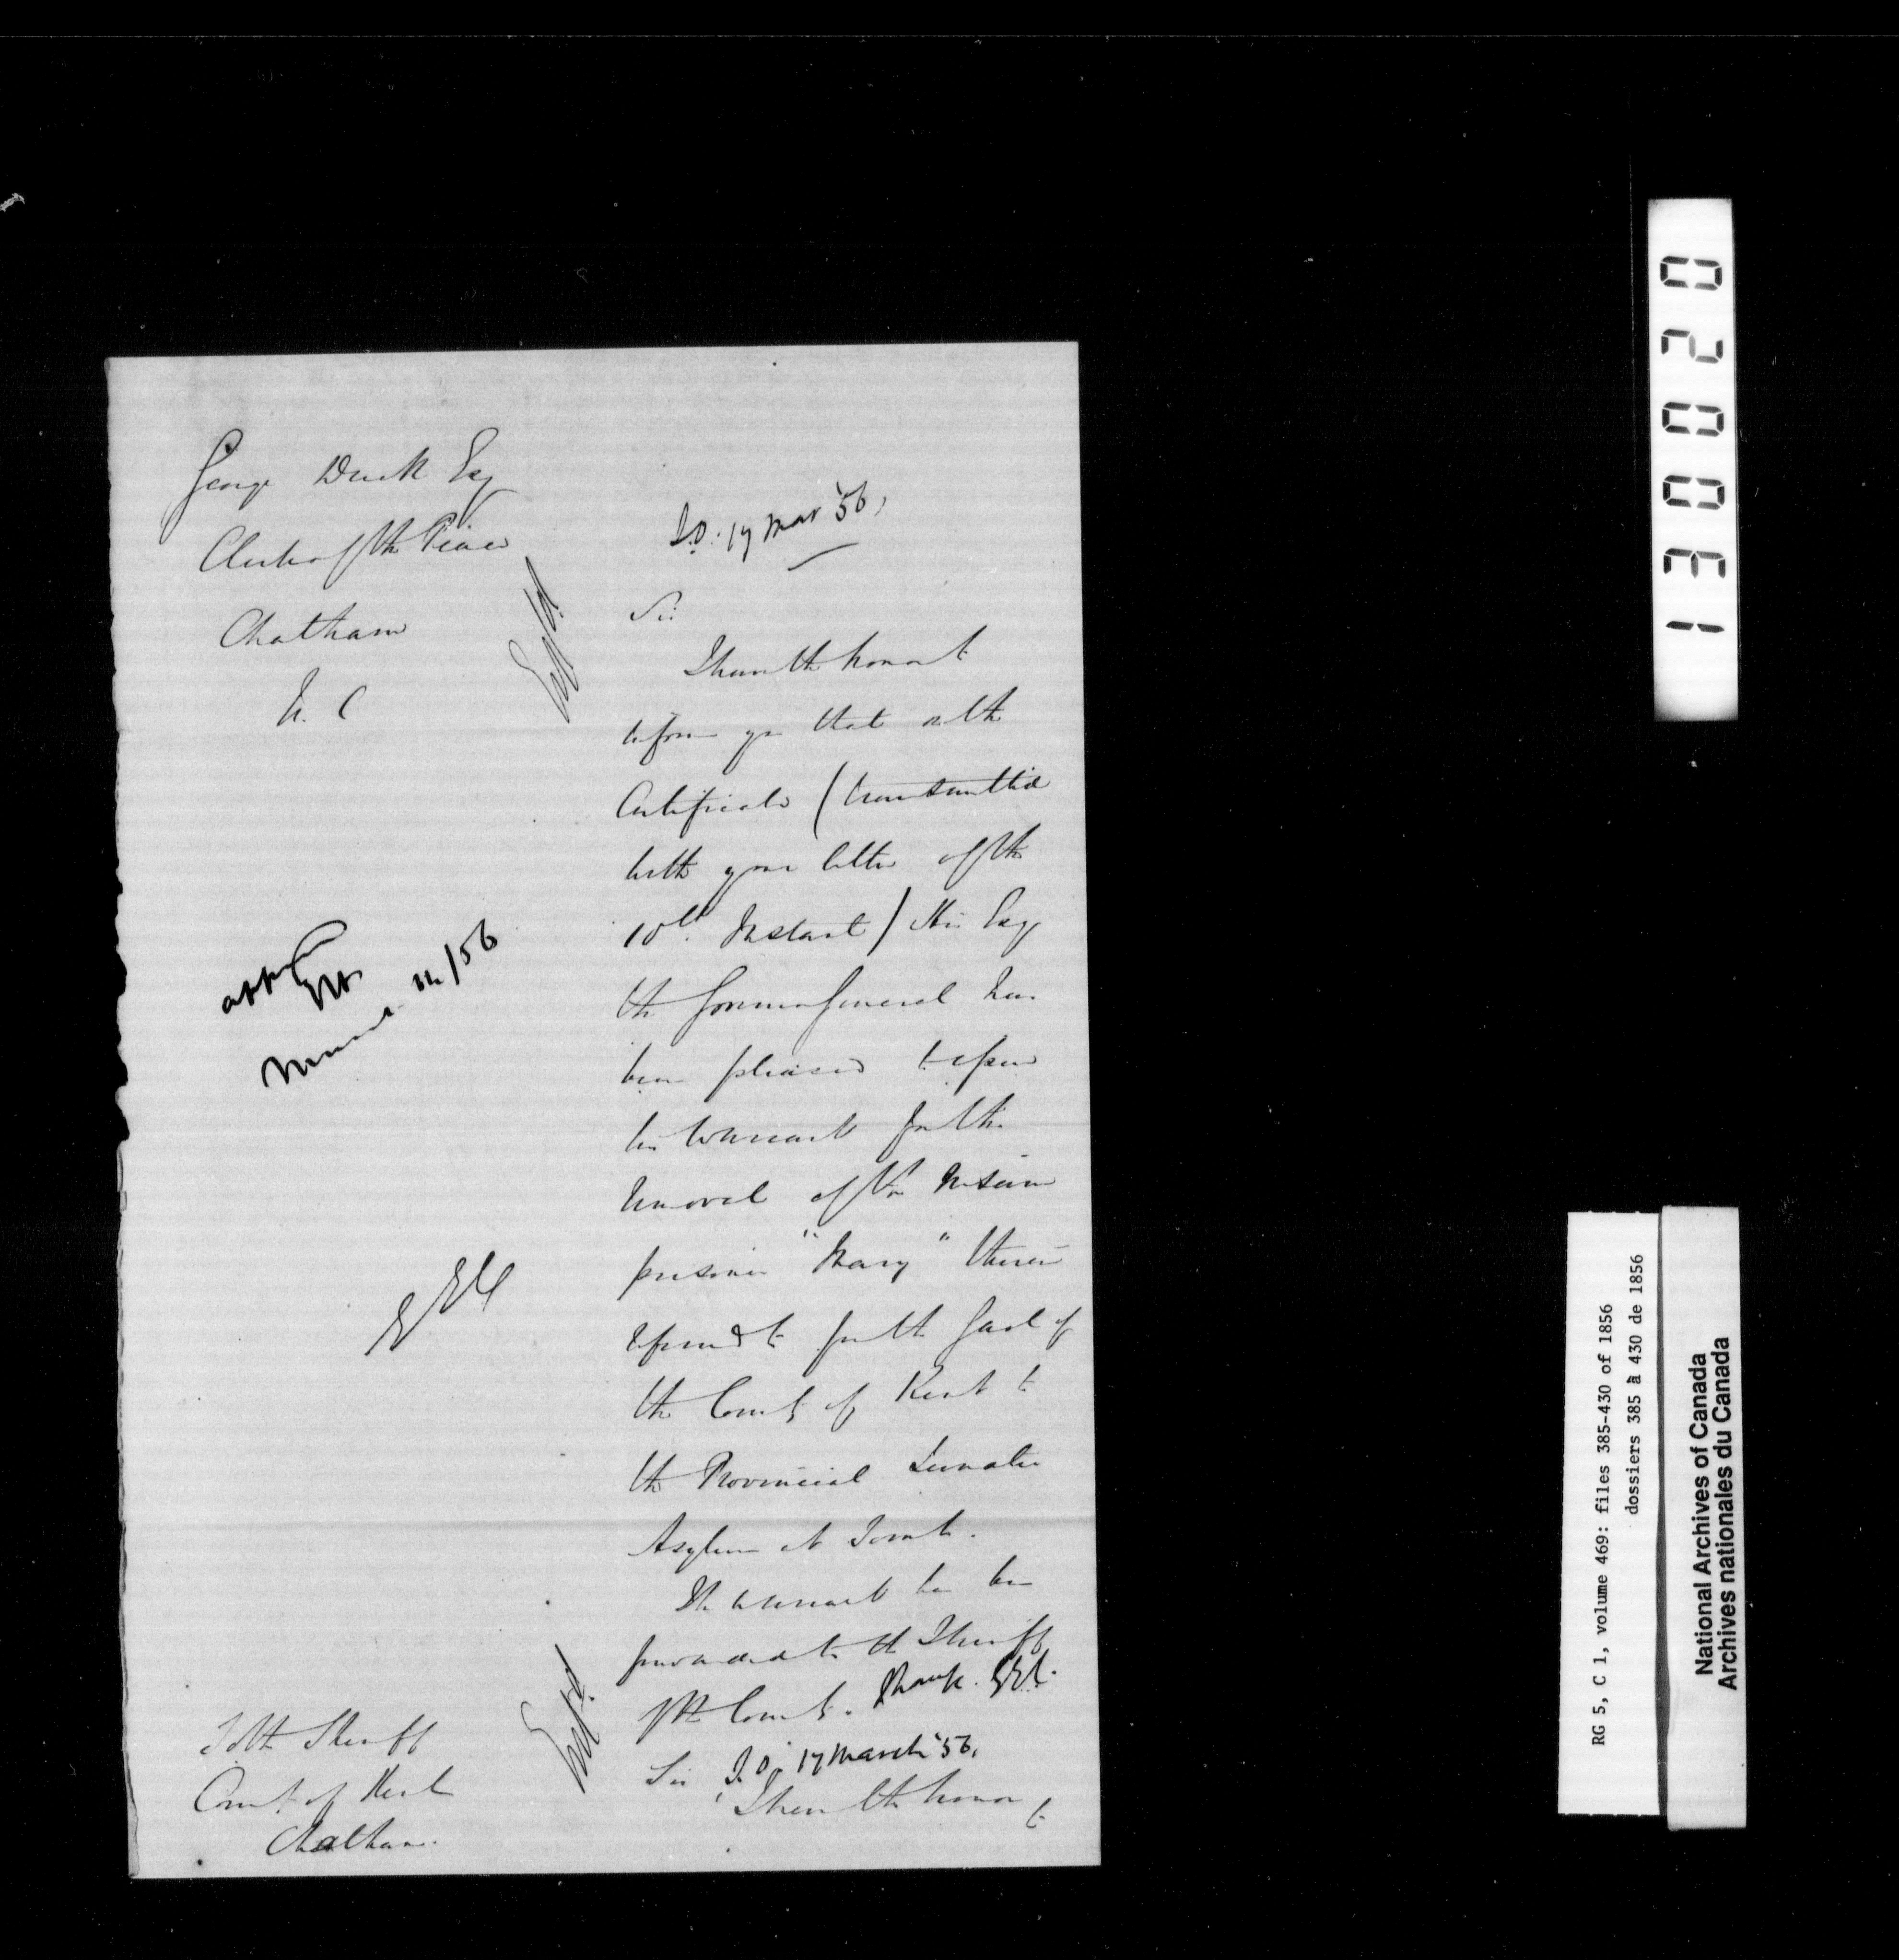 George Duck Esq
Clerk of the Peace
Chatham
U. C
S.O. 17 Mar '56,
Sir
I have the honor to
inform you that on the
Certificate (transmitted
with your letter of the
10th Instant) His Exy
the Governor General has
been pleased to issue
his Warrant for the
removal of the insane
prisoner "Mary" therein
referred to from the Gaol of
the County of Kent to
the Provincial Lunatic
Asylum at Toronto.
The warrant has been
forwarded to the Sheriff
of the County.
approved
March 14/56
To the Sheriff
County of Kent
Chatham.
Sir S.O. 17 March '56,
I have the honor to
130020
RG 5, C 1, volume 469: files 385-430 of 1856
dossiers 385 à 430 de 1856
National Archives of Canada
Archives nationales du Canada